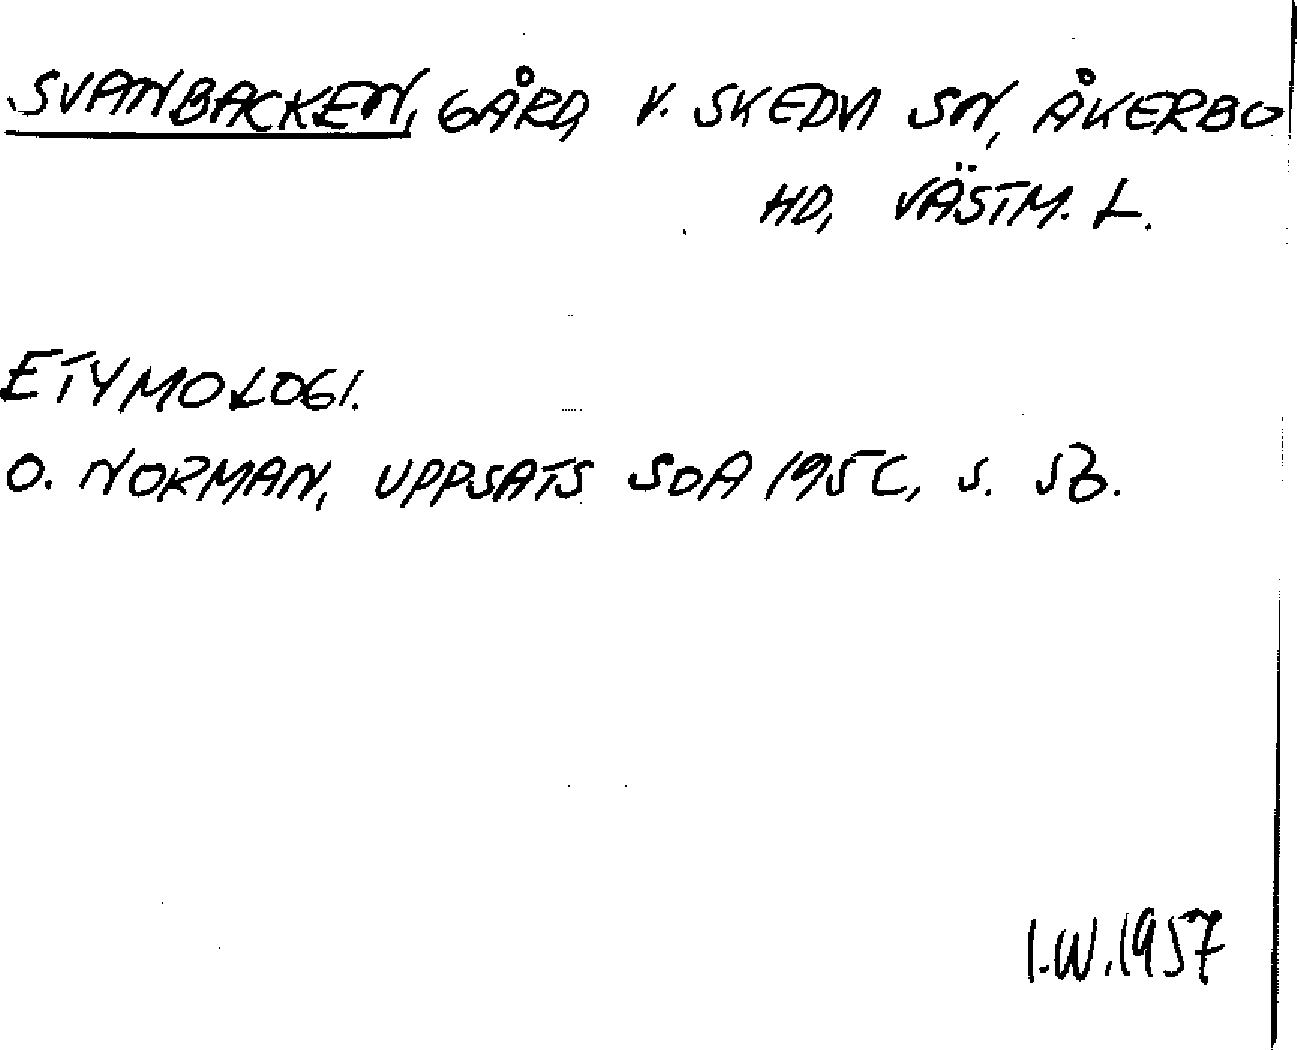 SVANBACKEN, GÅRD, V. SKEDVI SN, ÅKERBO
HD, VÄSTM. L.
ETYMOLOGI.
O. NORMAN, UPPSATS SOA 195C, S.
I.W. 1957